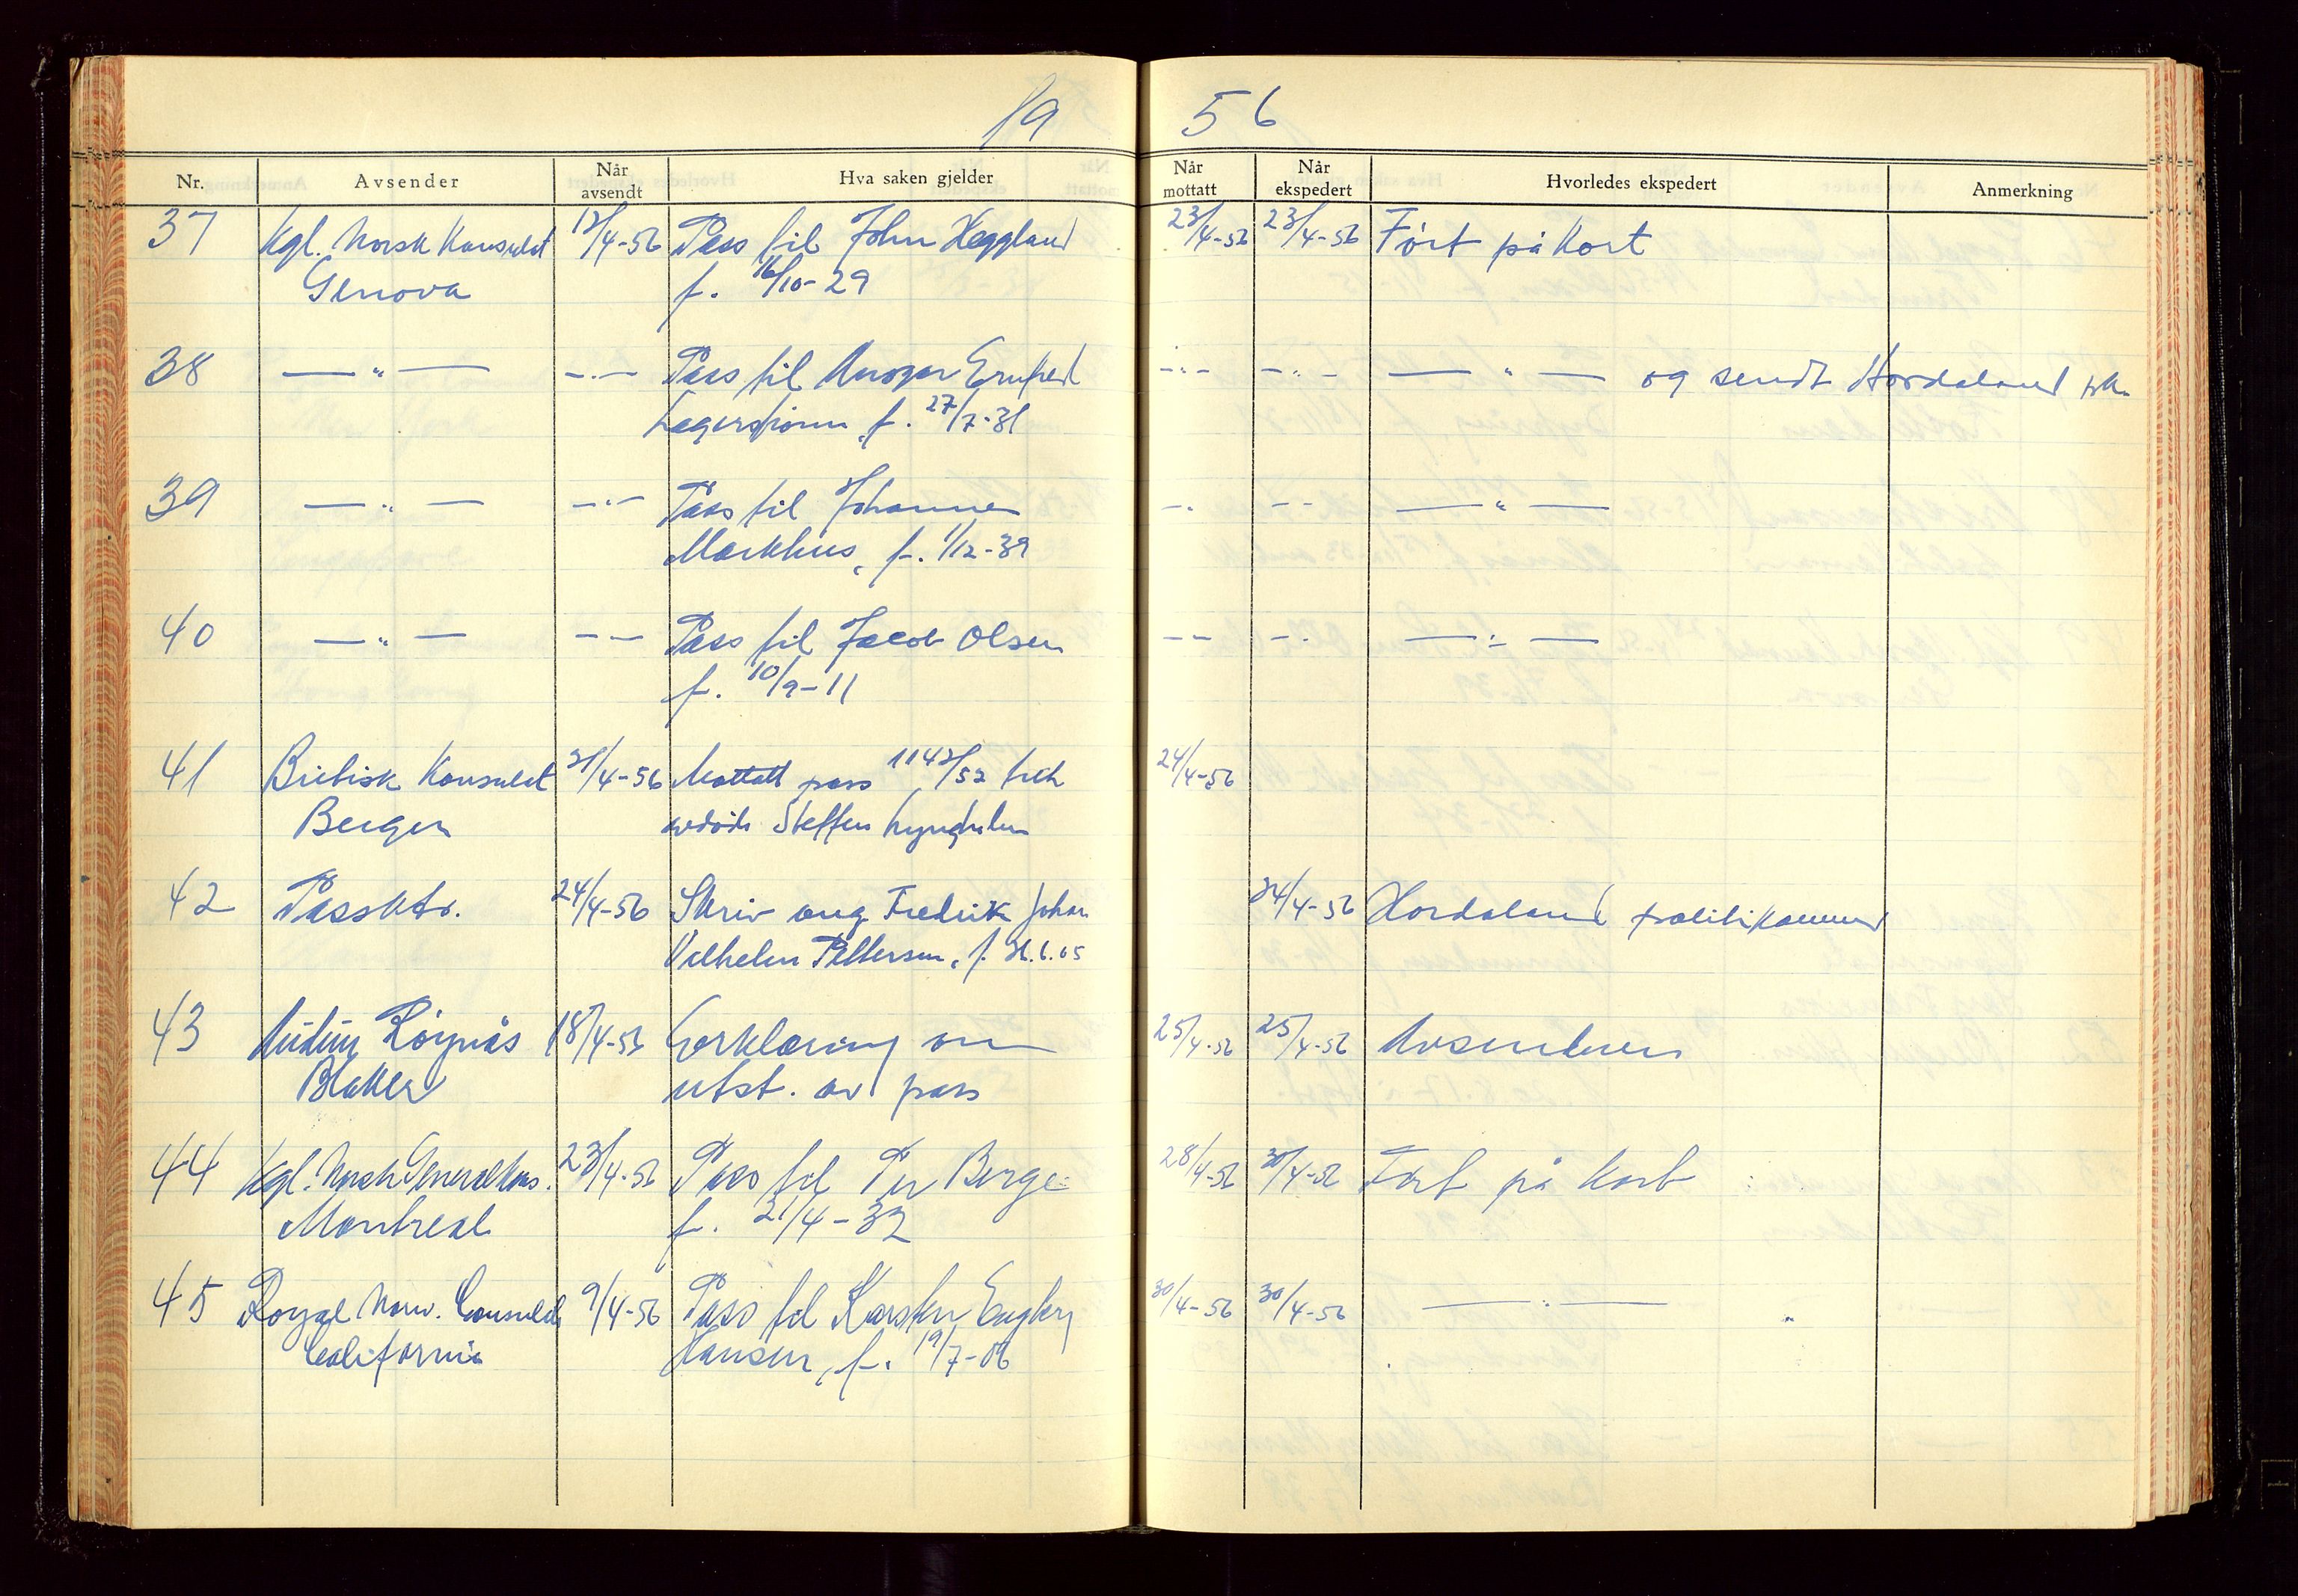 19 56
Nr. Avsender Når avsendt Hva saken gjelder Når mottatt Når ekspedert Hvorledes ekspedert Anmerkning
37 Kgl. Norsk Konsulat 12/4-56 Pass til John Heggland 23/4-56 23/4-56 Ført på kort
Genova f. 16/10-29
38 — " — -"- Pass til Ansgar -"- -"- — " — og sendt Hordaland pk.
Lagerstrøm, f. 27/7-31
39 — " — -"- Pass til Johannes -"- -"- — " —
Markhus, f. 1/12-39
40 — " — -"- Pass til Jacob Olsen -"- -"- — " —
f. 10/9-11
41 Britisk Konsulat 21/4-56 Mottatt pass 1142/52 24/4-56
Bergen avdøde Steffen
42 Passktr. 24/4-56 Skriv ang. Fredrik Johan 24/4-56 Hordaland politikammer
Vilhelm Pettersen, f.
43 Audun Røynås 18/4-56 Forklaring om 25/4-56 25/4-56 Avsenderen
Blaker utst. av pass
44 Kgl. Norsk Generalkons. 23/4-56 Pass til Per Berge 28/4-56 30/4-56 Ført på kort
Montreal f. 21/4-32
45 Royal Norw. Consulate 9/4-56 Pass til Karsten 30/4-56 30/4-56 — " — "
California Hansen, f. 19/7-06